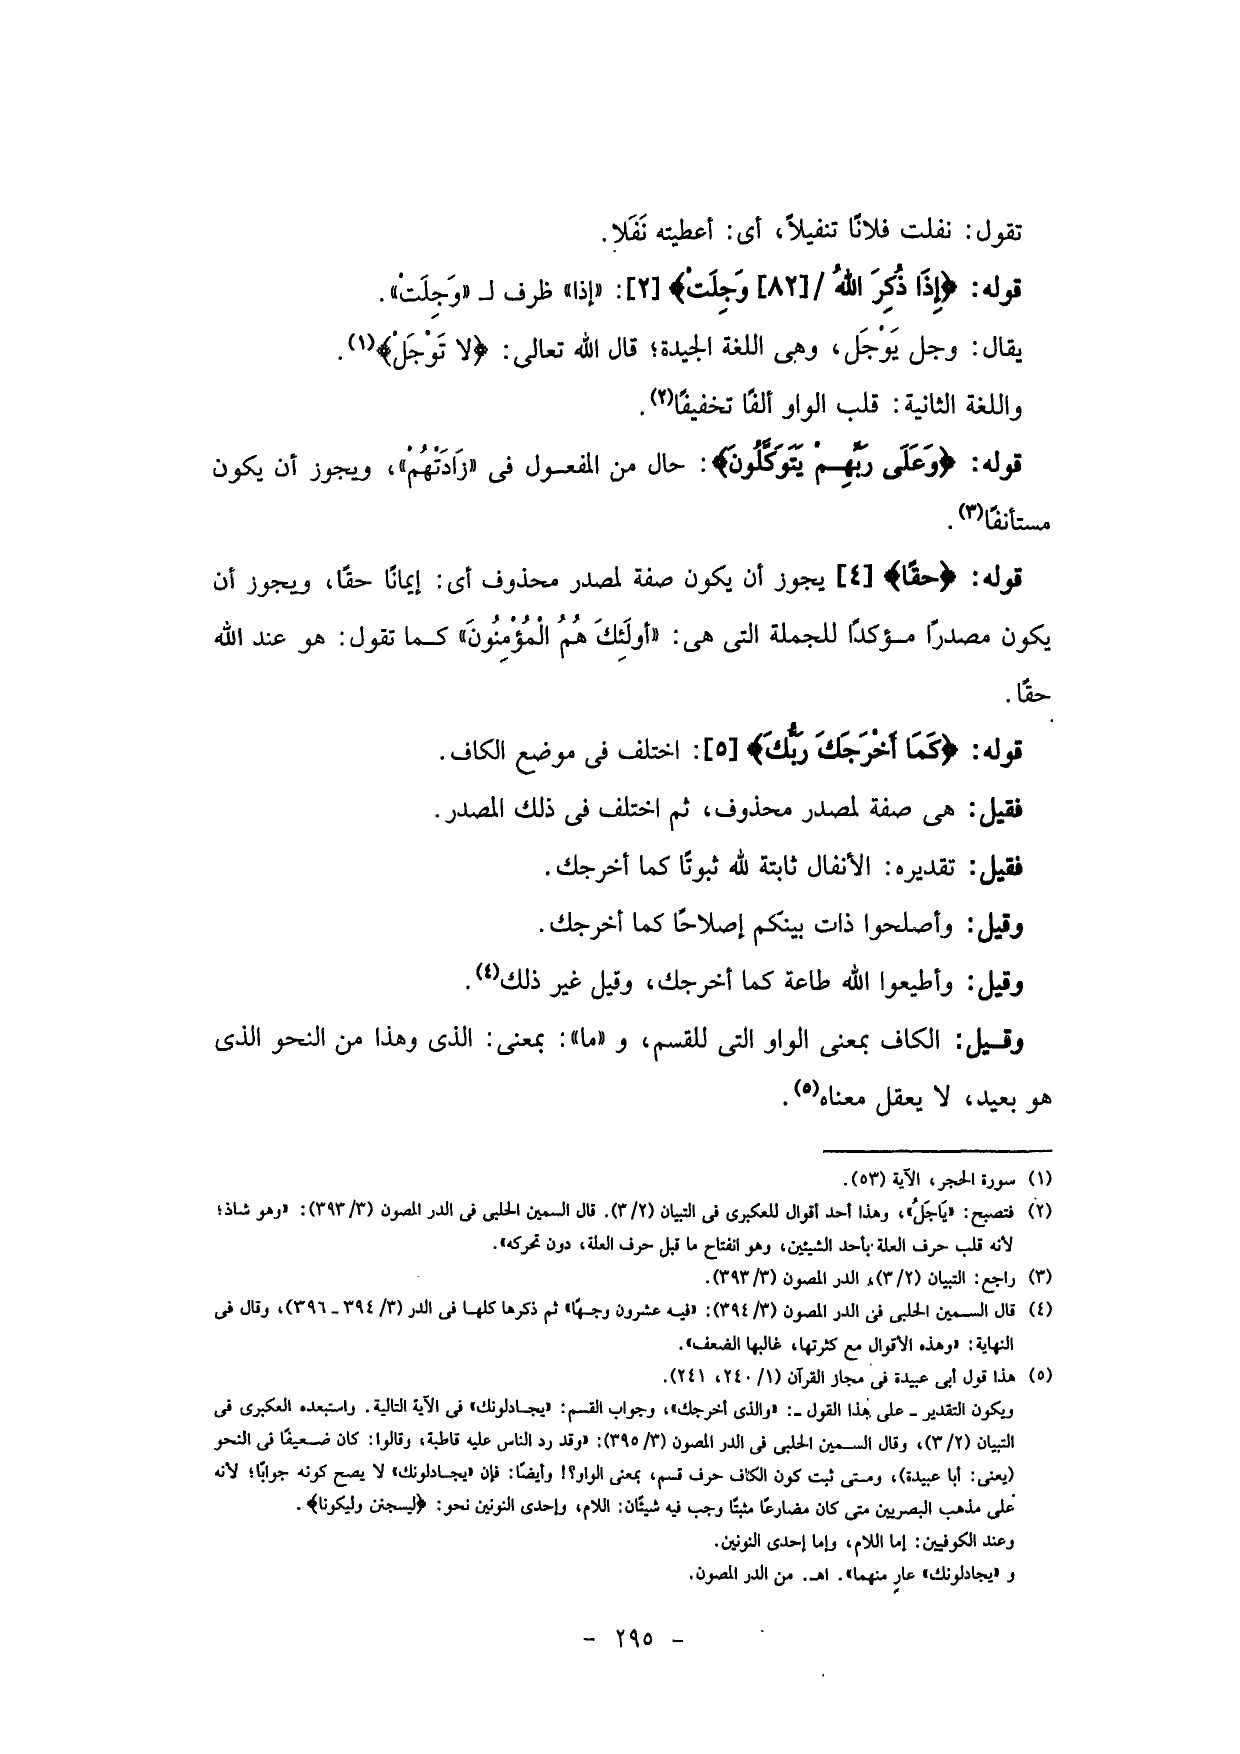 تقول: نفلت فلانًا تنفيلاً، أى: أعطيته نَفَلا.
قوله: ﴿إِذَا ذُكِرَ اللهُ /[٨٢] وَجِلَتْ﴾ [٢]: «إذا» ظرف لـ «وَجِلَتْ».
يقال: وجل يَوْجَل، وهى اللغة الجيدة؛ قال الله تعالى: ﴿لا تَوْجَلْ﴾(١).
واللغة الثانية: قلب الواو ألفًا تخفيفًا(٢).
قوله: ﴿وَعَلَى رَبِّهِمْ يَتَوَكَّلُونَ﴾: حال من المفعول فى «زَادَتْهُمْ»، ويجوز أن يكون
مستأنفًا(٣).
قوله: ﴿حقًا﴾ [٤] يجوز أن يكون صفة لمصدر محذوف أى: إيمانًا حقًا، ويجوز أن
يكون مصدرًا مؤكدًا للجملة التى هى: «أولَئِكَ هُمُ الْمُؤْمِنُونَ» كما تقول: هو عند الله
حقًا.
قوله: ﴿كَمَا أَخْرَجَكَ رَبُّكَ﴾ [٥]: اختلف فى موضع الكاف.
فقيل: هى صفة لمصدر محذوف، ثم اختلف فى ذلك المصدر.
فقيل: تقديره: الأنفال ثابتة لله ثبوتًا كما أخرجك.
وقيل: وأصلحوا ذات بينكم إصلاحًا كما أخرجك.
وقيل: وأطيعوا الله طاعة كما أخرجك، وقيل غير ذلك(٤).
وقيل: الكاف بمعنى الواو التى للقسم، و «ما»: بمعنى: الذى وهذا من النحو الذى
هو بعيد، لا يعقل معناه(٥).
(١) سورة الحجر، الآية (٥٣).
(٢) فتصبح: «يَاجَلُ»، وهذا أحد أقوال للعكبرى فى التبيان (٣/٢). قال السمين الحلبى فى الدر المصون (٣٩٣/٣): «وهو شاذ؛
لأنه قلب حرف العلة بأحد الشيئين، وهو انفتاح ما قبل حرف العلة، دون تحركه».
(٣) راجع: التبيان (٣/٢)، الدر المصون (٣٩٣/٣).
(٤) قال السمين الحلبى فى الدر المصون (٣٩٤/٣): «فيه عشرون وجهًا» ثم ذكرها كلها فى الدر (٣/ ٣٩٤ـ ٣٩٦)، وقال فى
النهاية: «وهذه الأقوال مع كثرتها، غالبها الضعف».
(٥) هذا قول أبى عبيدة فى مجاز القرآن (١/ ٢٤٠، ٢٤١).
ويكون التقدير ـ على هذا القول ـ: «والذى أخرجك»، وجواب القسم: «يجادلونك» فى الآية التالية. واستبعده العكبرى فى
التبيان (٣/٢)، وقال السمين الحلبى فى الدر المصون (٣٩٥/٣): «وقد رد الناس عليه قاطبة، وقالوا: كان ضعيفًا فى النحو
(يعنى: أبا عبيدة)، ومتى ثبت كون الكاف حرف قسم، بمعنى الواو؟! وأيضًا: فإن «يجادلونك» لا يصح كونه جوابًا؛ لأنه
على مذهب البصريين متى كان مضارعًا مثبتًا وجب فيه شيئان: اللام، وإحدى النونين نحو: ﴿ليسجنن وليكونا﴾.
وعند الكوفيين: إما اللام، وإما إحدى النونين.
و «يجادلونك» عارٍ منهما». اهـ. من الدر المصون.
- ٢٩٥ -